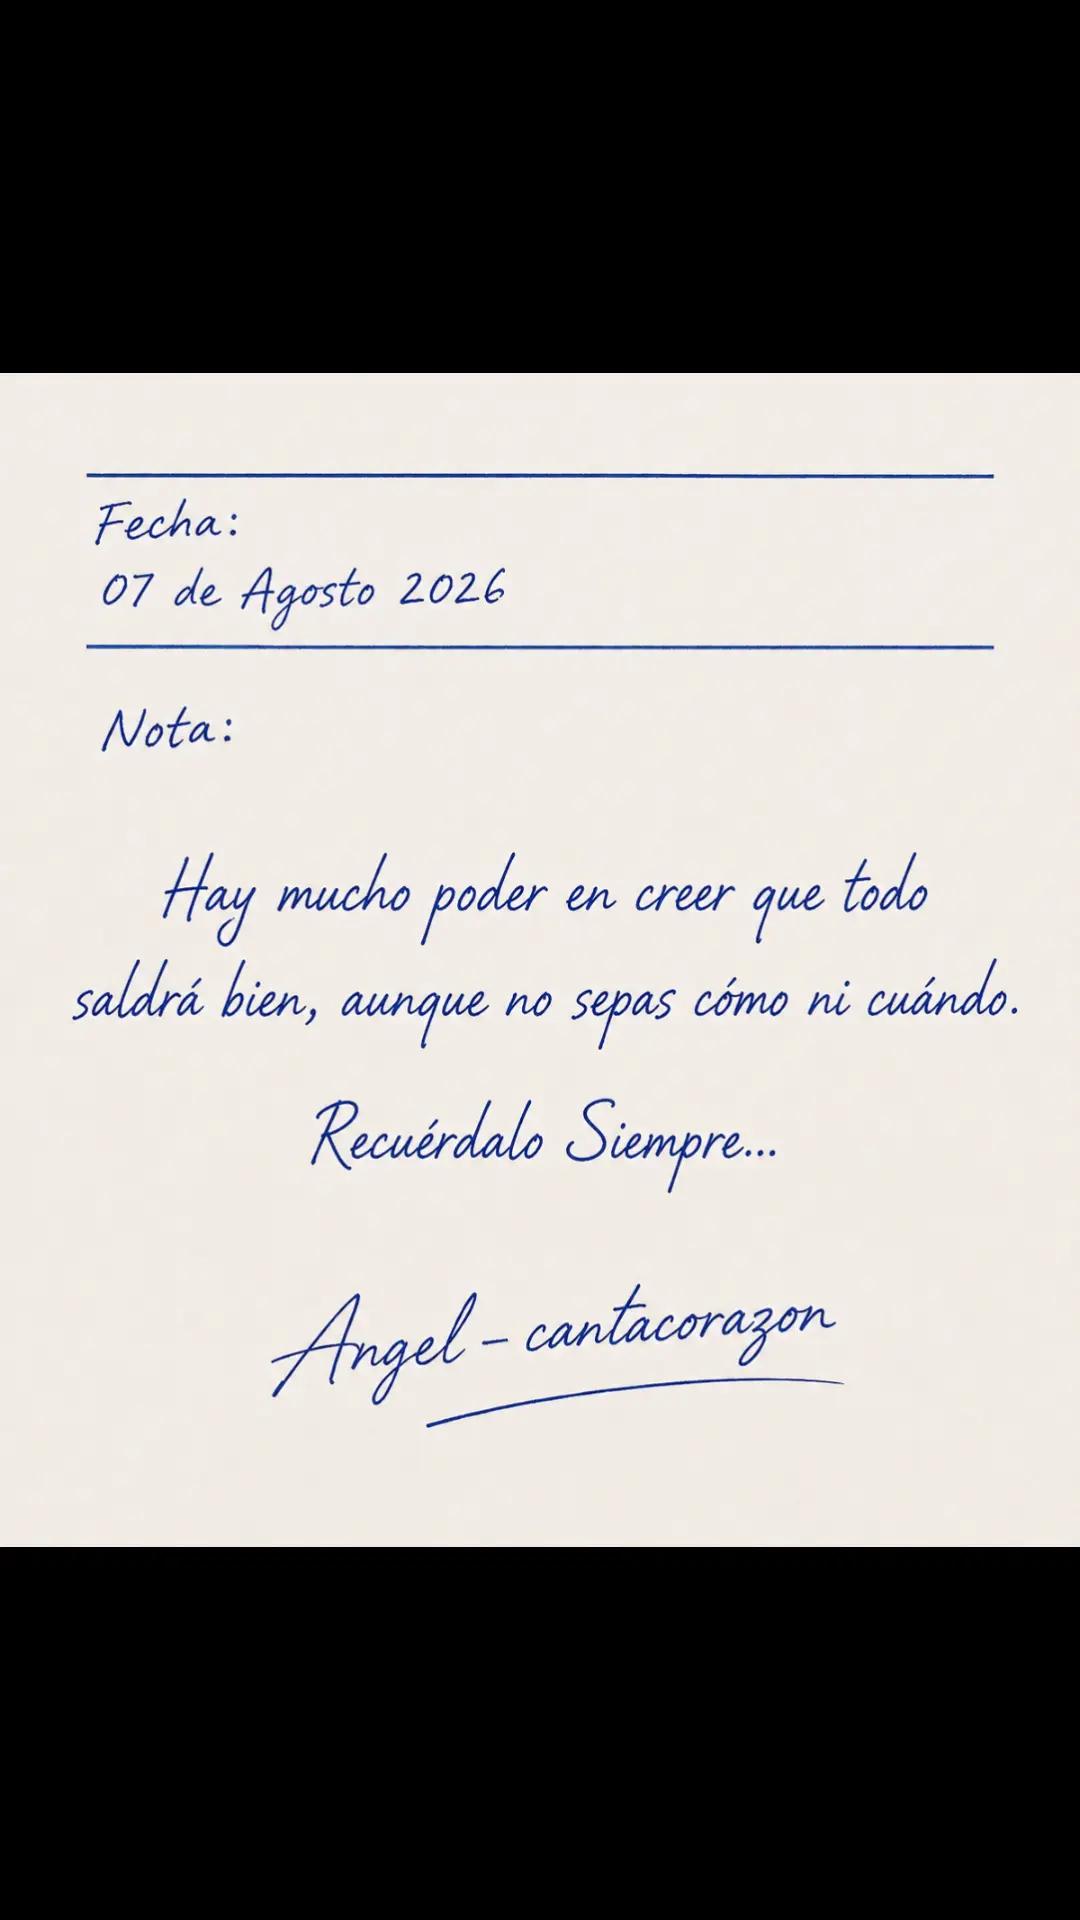 Fecha:
07 de Agosto 2026
Nota:
Hay mucho poder en creer que todo
saldrá bien, aunque no sepas cómo ni cuándo.
Recuérdalo Siempre...
Angel - cantacorazon